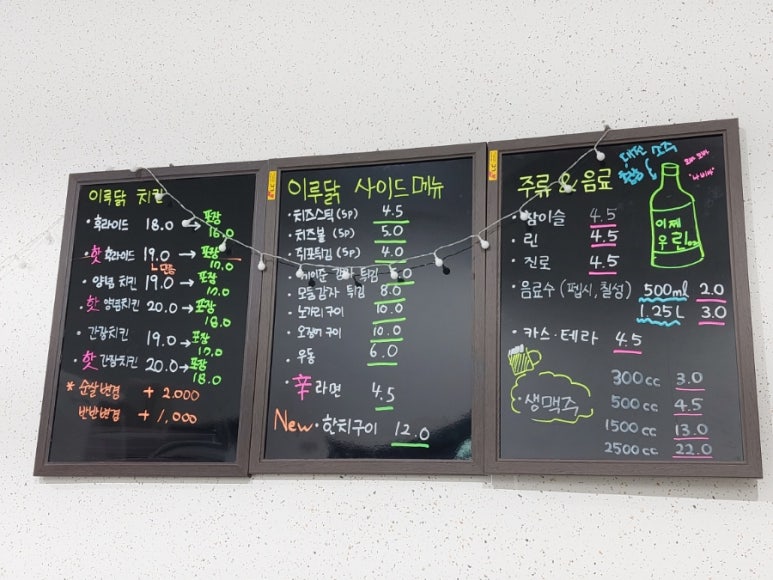 이루닭 치킨
· 후라이드 18.0 → 포장 16.0
· 핫 후라이드 19.0 → 포장 17.0
· 양념 치킨 19.0 → 포장 17.0
· 핫 양념치킨 20.0 → 포장 18.0
· 간장치킨 19.0 → 포장 17.0
· 핫 간장치킨 20.0 → 포장 18.0
* 순살변경 + 2.000
반반변경 + 1,000
이루닭 사이드메뉴
· 치즈스틱 (5p) 4.5
· 치즈볼 (5p) 5.0
· 쥐포튀김 (5p) 4.0
· 케이준 감자 튀김
· 모듬감자 튀김 8.0
· 노가리구이 10.0
· 오징어구이 10.0
· 우동 6.0
· 辛라면 4.5
New · 한치구이 12.0
주류 & 음료
대전 소주
이제 우린
· 참이슬 4.5
· 린 4.5
· 진로 4.5
· 음료수 (펩시, 칠성) 500ml 2.0
1.25L 3.0
· 카스 · 테라 4.5
· 생맥주
300cc 3.0
500cc 4.5
1500cc 13.0
2500cc 22.0